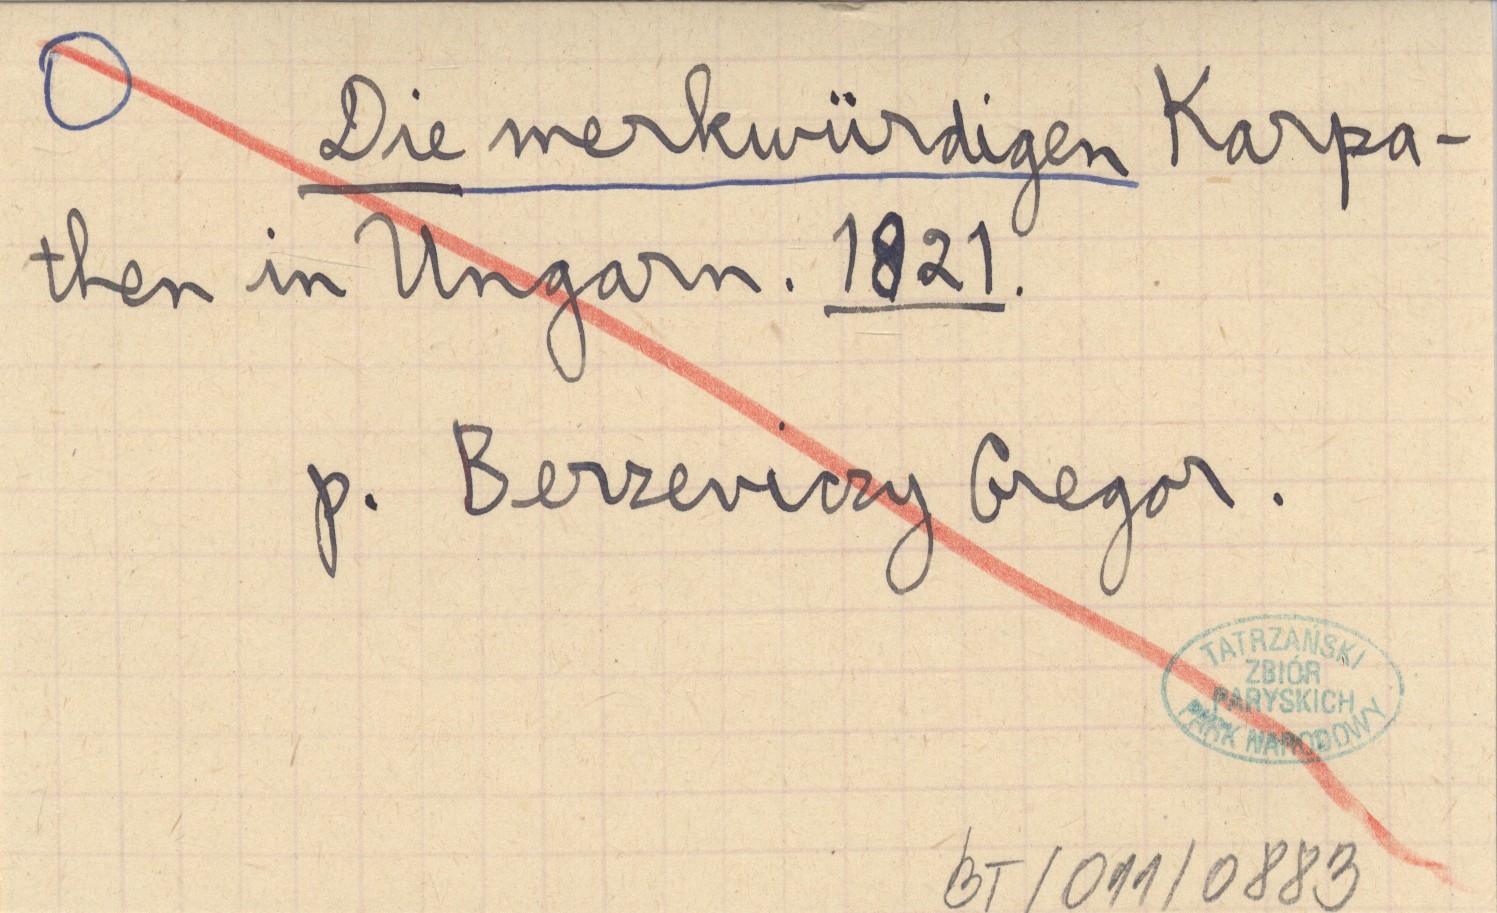 Die merkwürdigen Karpa-
then in Ungarn. 1821.
p. Berzeviczy Gregor.
TATRZAŃSKI
ZBIÓR
PARYSKICH
PARK NARODOWY
BT/011/0883